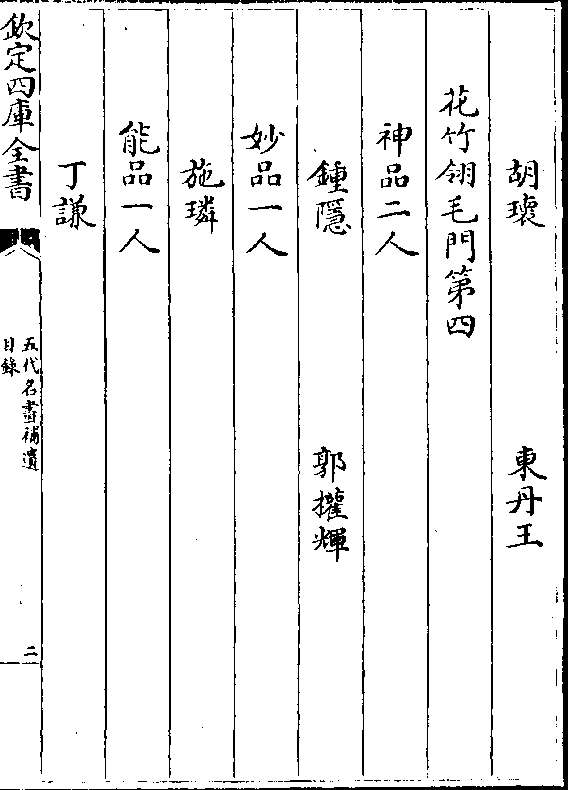 胡瓌　東丹王
花竹翎毛門第四
神品二人
鍾隱　郭權輝
妙品一人
施璘
能品一人
丁謙
欽定四庫全書
五代名畫補遺
目錄
二